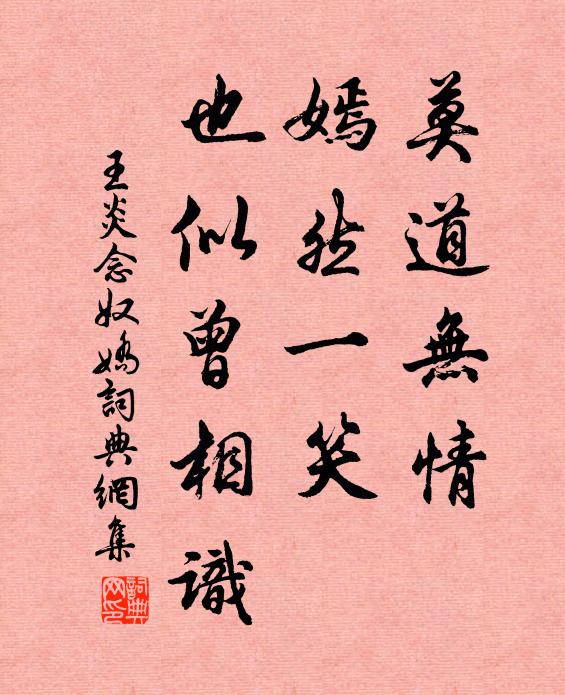 莫道無情
嫣然一笑
也似曾相識
王炎念奴嬌詞典網集
詞典网印